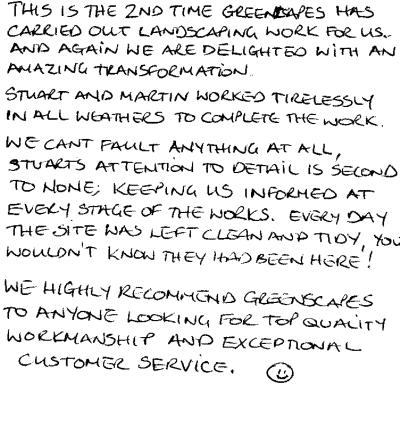 THIS IS THE 2ND TIME GREENSCAPES HAS
CARRIED OUT LANDSCAPING WORK FOR US.
AND AGAIN WE ARE DELIGHTED WITH AN
AMAZING TRANSFORMATION.
STUART AND MARTIN WORKED TIRELESSLY
IN ALL WEATHERS TO COMPLETE THE WORK.
WE CANT FAULT ANYTHING AT ALL,
STUARTS ATTENTION TO DETAIL IS SECOND
TO NONE; KEEPING US INFORMED AT
EVERY STAGE OF THE WORKS. EVERY DAY
THE SITE WAS LEFT CLEAN AND TIDY, YOU
WOULDN'T KNOW THEY HAD BEEN HERE!
WE HIGHLY RECOMMEND GREENSCAPES
TO ANYONE LOOKING FOR TOP QUALITY
WORKMANSHIP AND EXCEPTIONAL
CUSTOMER SERVICE.